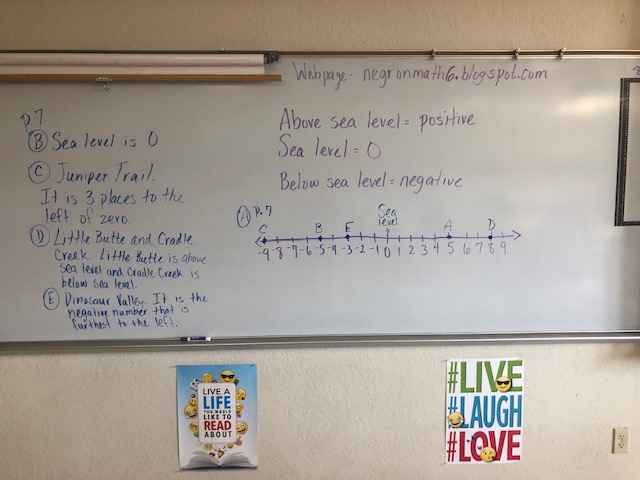 Webpage - negronmath6.blogspot.com
p7
B Sea level is 0
C Juniper Trail.
It is 3 places to the
left of zero.
D Little Butte and Cradle
Creek. Little Butte is above
sea level and Cradle Creek is
below sea level.
E Dinosaur Valley. It is the
negative number that is
furthest to the left.
Above sea level = positive
Sea level = 0
Below sea level = negative
A p.7
Sea
level
C B E A D
-9 -8 -7 -6 -5 -4 -3 -2 -1 0 1 2 3 4 5 6 7 8 9
LIVE A
LIFE
YOU WOULD
LIKE TO
READ
ABOUT
#LIVE
#LAUGH
#LOVE